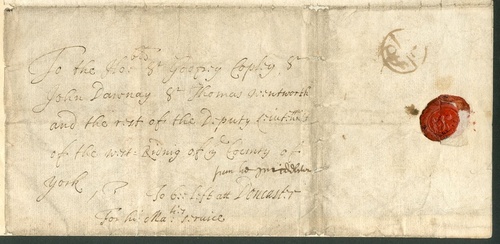 To the Hon^ble S^r Godfrey Copley, S^r
John Dawnay S^r Thomas Wentworth
and the rest of the Deputy Lieuten^ts
of the West-Riding of y^e County of
York,
To bee left att Doncaster
For his Ma^ties service